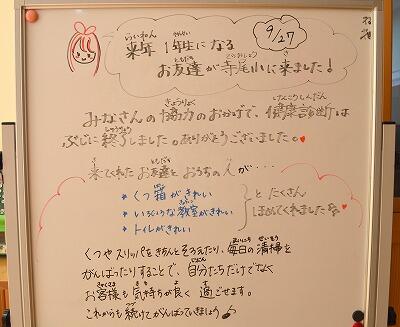 来年 1年生になる 9/27
お友達が寺尾小に来ました！
みなさんの協力のおかげで、健康診断は
ぶじに終了しました。ありがとうございました。♥
来てくれたお友達とおうちの人が・・・・
＊くつ箱がきれい
＊いろいろな教室がきれい
＊トイレがきれい
とたくさん
ほめてくれました
くつやスリッパをきちんとそろえたり、毎日の清掃を
がんばったりすることで、自分たちだけでなく
お客様も気持ちが良く過ごせます。
これからも続けてがんばっていきましょう♪